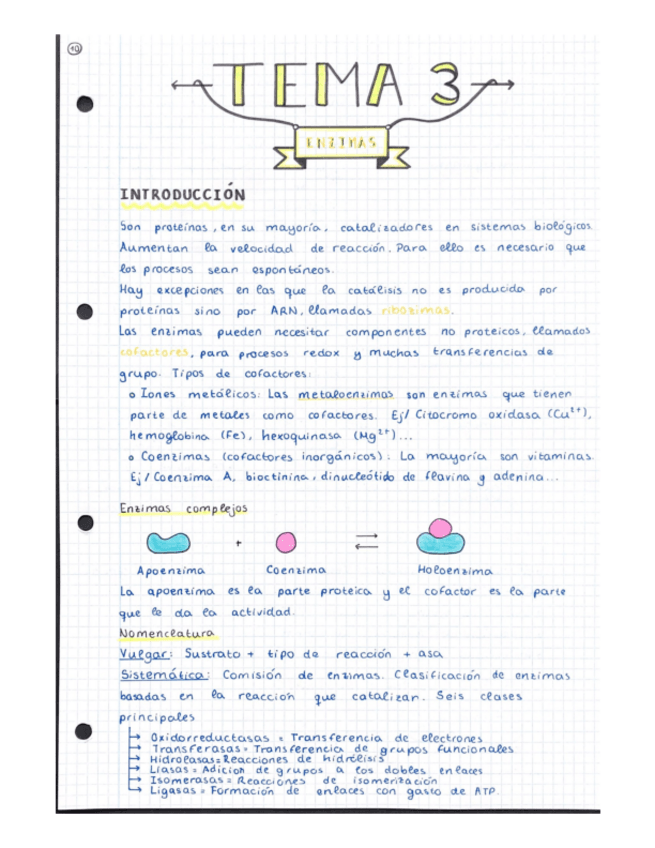 10
TEMA 3
ENZIMAS
INTRODUCCIÓN
Son proteínas, en su mayoría, catalizadores en sistemas biológicos.
Aumentan la velocidad de reacción. Para ello es necesario que
los procesos sean espontáneos.
Hay excepciones en las que la catálisis no es producida por
proteínas sino por ARN, llamadas ribozimas.
Las enzimas pueden necesitar componentes no proteicos, llamados
cofactores, para procesos redox y muchas transferencias de
grupo. Tipos de cofactores:
o Iones metálicos: Las metaloenzimas son enzimas que tienen
parte de metales como cofactores. Ej/ Citocromo oxidasa (Cu²⁺),
hemoglobina (Fe), hexoquinasa (Mg²⁺)...
o Coenzimas (cofactores inorgánicos): La mayoría son vitaminas.
Ej/ Coenzima A, bioctinina, dinucleótido de flavina y adenina...
Enzimas complejos
+ ⇌
Apoenzima Coenzima Holoenzima
La apoenzima es la parte proteica y el cofactor es la parte
que le da la actividad.
Nomenclatura
Vulgar: Sustrato + tipo de reacción + asa
Sistemática: Comisión de enzimas. Clasificación de enzimas
basadas en la reacción que catalizan. Seis clases
principales
→ Oxidorreductasas = Transferencia de electrones
→ Transferasas = Transferencia de grupos funcionales
→ Hidrolasas = Reacciones de hidrólisis
→ Liasas = Adición de grupos a los dobles enlaces
→ Isomerasas = Reacciones de isomerización
→ Ligasas = Formación de enlaces con gasto de ATP.